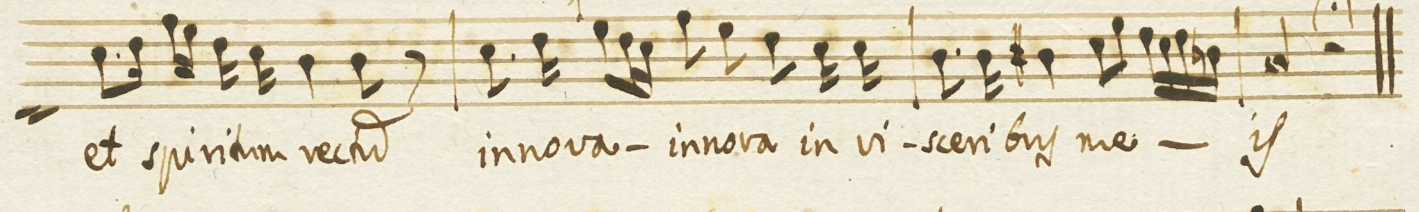 et spiritum rectū innova- innova in vi-sceribus me - is